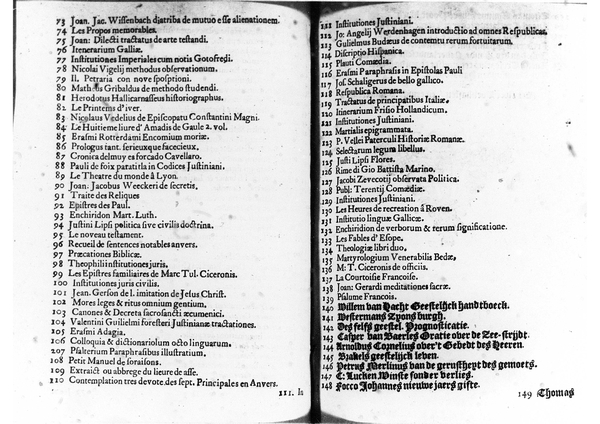 73 Joan. Jac. Wissenbach diatriba de mutuo esse alienationem.
74 Les Propos memorables.
75 Joan: Dilecti tractatus de arte testandi.
76 Itenerarium Galliæ.
77 Institutiones Imperiales cum notis Gotofredi.
78 Nicolai Vigelij methodus observationum.
79 Il. Petraria con nove sposptioni.
80 Math. Gribaldus de methodo studendi.
81 Herodotus Hallicarnasseus historiographus.
82 Le Printems d'iver.
83 Nicolaus Vedelius de Episcopatu Constantini Magni.
84 Le Huitieme liure d'Amadis de Gaule 2. vol.
85 Erasmi Rotterdami Encomium moriæ.
86 Prologus tant. serieuxque facecieux.
87 Cronica delmuy es forcado Cavellaro.
88 Pauli de foix paratitla in Codices Justiniani.
89 Le Theatre du monde à Lyon.
90 Joan: Jacobus Weeckeri de secretis.
91 Traite des Reliques
92 Epistres des Paul.
93 Enchiridon Mart. Luth.
94 Justini Lipsi politica sive civilis doctrina.
95 Le noveau testament.
96 Recueil de sentences notables anvers.
97 Præcationes Biblicæ.
98 Theophili institutiones juris.
99 Les Epistres familiaires de Marc Tul. Ciceronis.
100 Institutiones juris civilis.
101 Jean. Gerson de l. imitation de Jesus Christ.
102 Mores leges & ritus omnium gentium.
103 Canones & Decreta sacrosancti œcumenici.
104 Valentini Guilielmi foresteri Justinianæ tractationes.
105 Erasmi Adagia.
106 Colloquia & dictionariolum octo linguarum.
107 Psalterium Paraphrasibus illustratium.
108 Petit Manuel de soraisons.
109 Extraict ou abbrege du lieure de asse.
110 Contemplation tres devote.des sept. Principales en Anvers.
111. In
111 Institutiones Justiniani.
112 Jo: Angelij Werdenhagen introductio ad omnes Respublicas.
113 Gulielmus Budæus de contemtu rerum fortuitarum.
114 Discriptio Hispanica.
115 Plauti Comœdia.
116 Erasmi Paraphrasis in Epistolas Pauli
117 Jos. Schaligerus de bello gallico.
118 Respublica Romana.
119 Tractatus de principatibus Italiæ.
120 Itinerarium Frisio Hollandicum.
121 Institutiones Justiniani.
122 Martialis epigrammata.
123 P. Vellei Paterculi Historiæ Romanæ.
124 Selectarum legum libellus.
125 Justi Lipsi Flores.
126 Rime di Gio Battista Marino.
127 Jacobi Zevecotij observata Politica.
128 Publ: Terentij Comœdiæ.
129 Institutiones Justiniani.
130 Les Heures de recreation á Roven.
131 Institutio linguæ Gallicæ.
132 Enchiridion de verborum & rerum significatione.
133 Les Fables d'Esope.
134 Theologiæ libri duo.
135 Martyrologium Venerabilis Bedæ.
136 M: T. Ciceronis de officiis.
137 La Courtoisie Francoise.
138 Joan: Gerardi meditationes sacræ.
139 Psalume Francois.
140 Willem van Nacht Geestelijck handtboeck.
141 Westermans Zyons burgh.
142 Des selfs geestel. Prognosticatie.
143 Casper van Baerles Oratie over de Zee-strijdt.
144 Arnoldus Cornelius over't Gebedt des Heeren.
145 Brakels geestelijck leven.
146 Petrus Merlinus van de gerustheyt des gemoets.
147 C: Lucken Winste sonder verlies.
148 Focco Johannes nieuwe jaers gifte.
149 Thomas